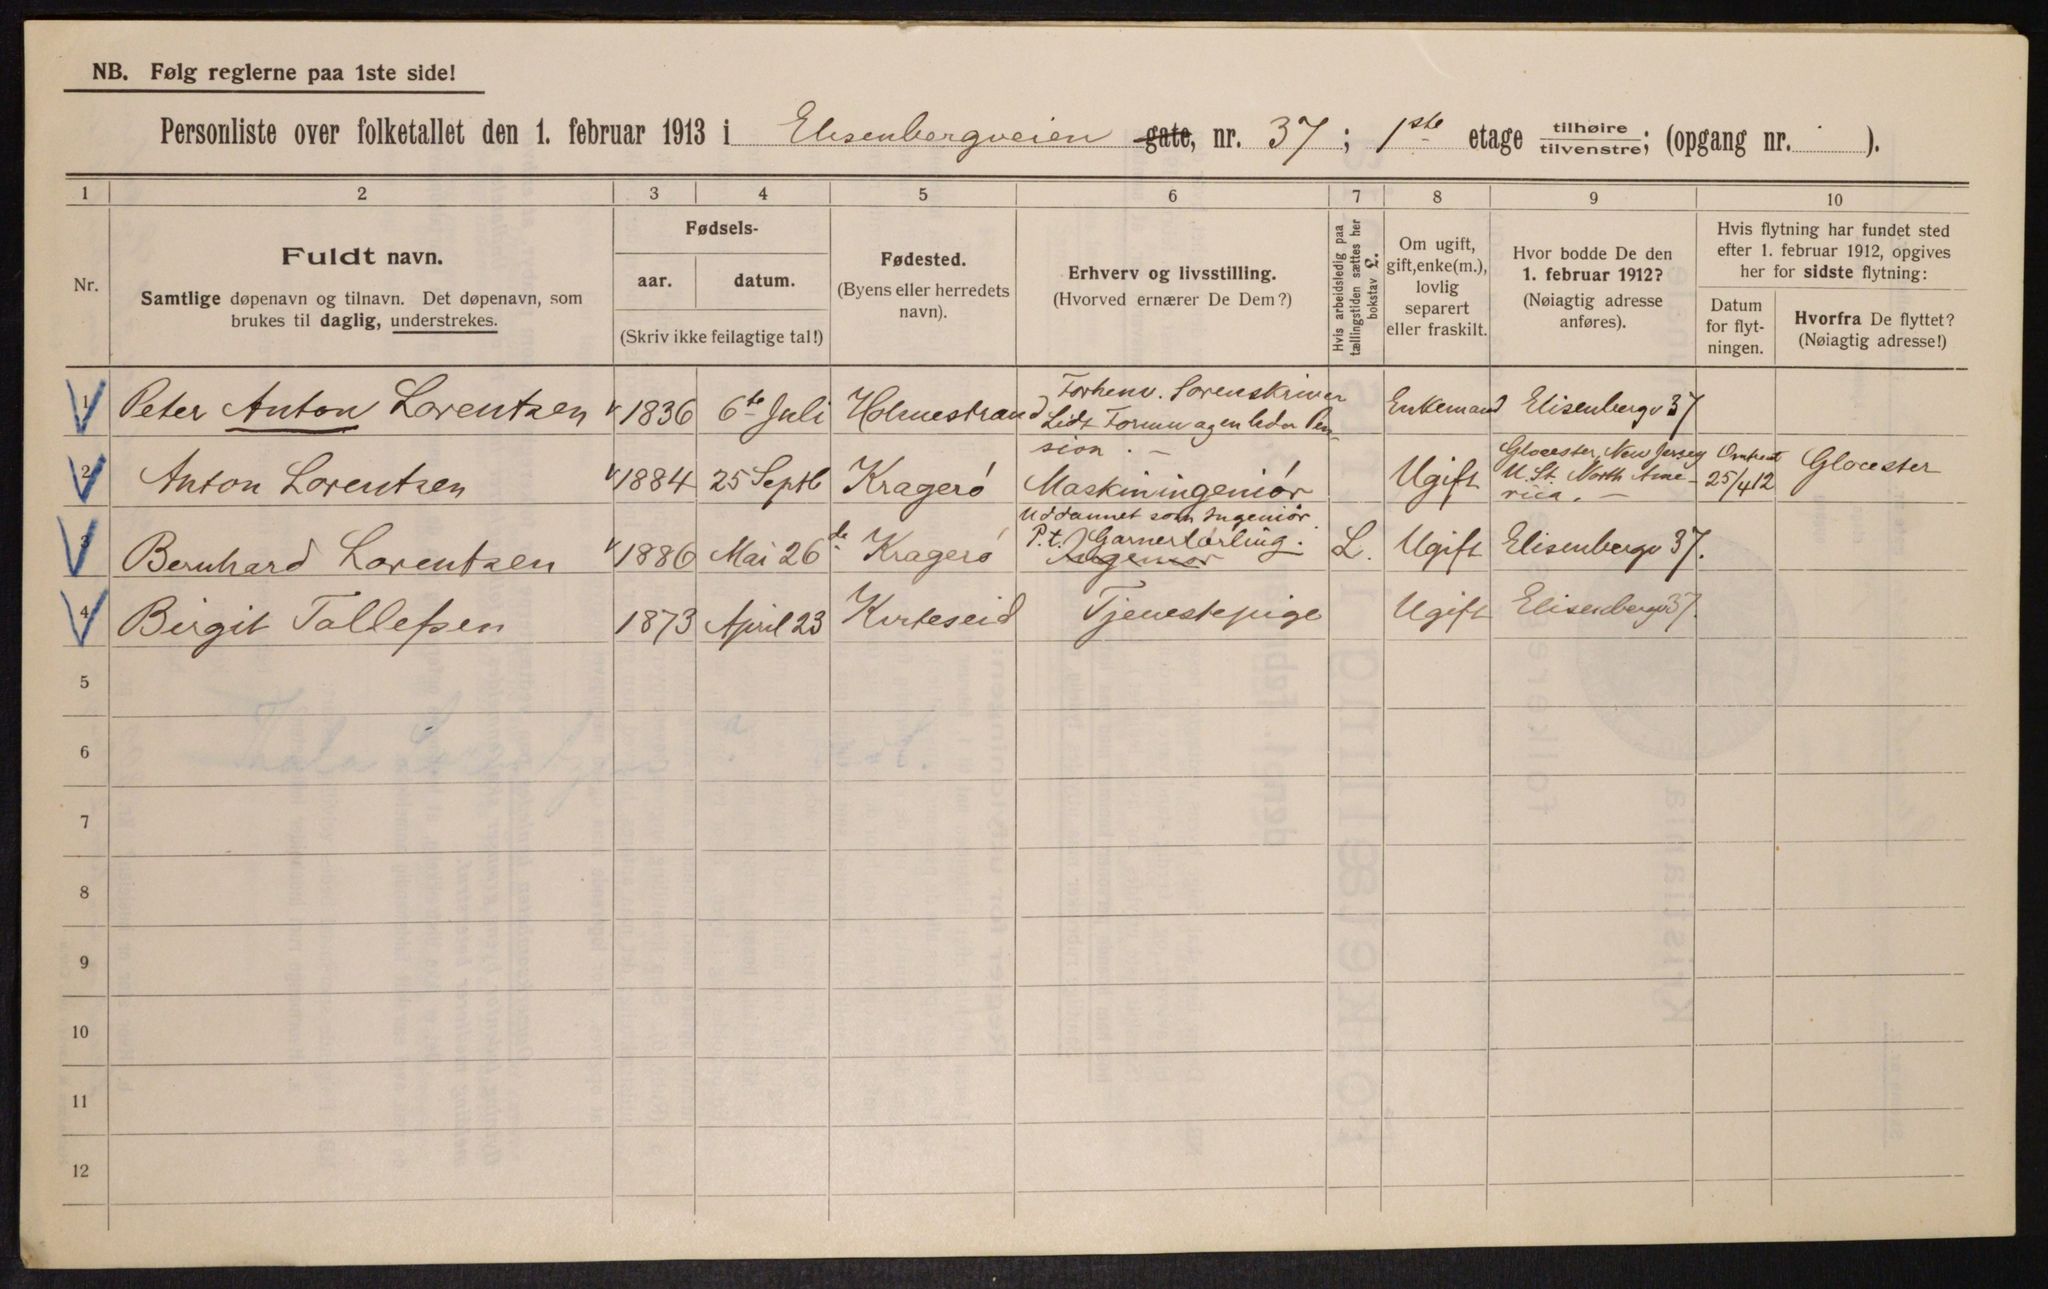 NB. Følg reglerne paa 1ste side!
Personliste over folketallet den 1. februar 1913 i Elisenbergveien gate, nr. 37; 1ste etage tilhøire tilvenstre; (opgang nr. ).
1 2 3 4 5 6 7 8 9 10
Nr.
Fuldt navn.
Samtlige døpenavn og tilnavn. Det døpenavn, som
brukes til daglig, understrekes.
Fødsels-
aar. datum.
(Skriv ikke feilagtige tal!)
Fødested.
(Byens eller herredets
navn).
Erhverv og livsstilling.
(Hvorved ernærer De Dem?)
Hvis arbeidsledig paa
tællingstiden sættes her
bokstav L.
Om ugift,
gift, enke(m.),
lovlig
separert
eller fraskilt.
Hvor bodde De den
1. februar 1912?
(Nøiagtig adresse
anføres).
Hvis flytning har fundet sted
efter 1. februar 1912, opgives
her for sidste flytning:
Datum
for flyt-
ningen.
Hvorfra De flyttet?
(Nøiagtig adresse!)
1 Peter Anton Lorentzen 1836 6te Juli Holmestrand Forhenv. Sorenskriver
Lidt Formu agenleder Pen-
sion. Enkemand Elisenbergv 37
2 Anton Lorentzen 1884 25 Septb Kragerö Maskiningeniör Ugift Glocester, New Jersey
U. St. North Ame-
rica. Omtrent
25/4 12 Glocester
3 Bernhard Lorentzen 1886 Mai 26de Kragerö Uddannet som Ingeniör.
P.t. Gartnerlærling.
Ingeniör L. Ugift Elisenbergv 37.
4 Birgit Tallefsen 1873 April 23 Kviteseid Tjenestepige Ugift Elisenbergv 37.
5
6
7
8
9
10
11
12